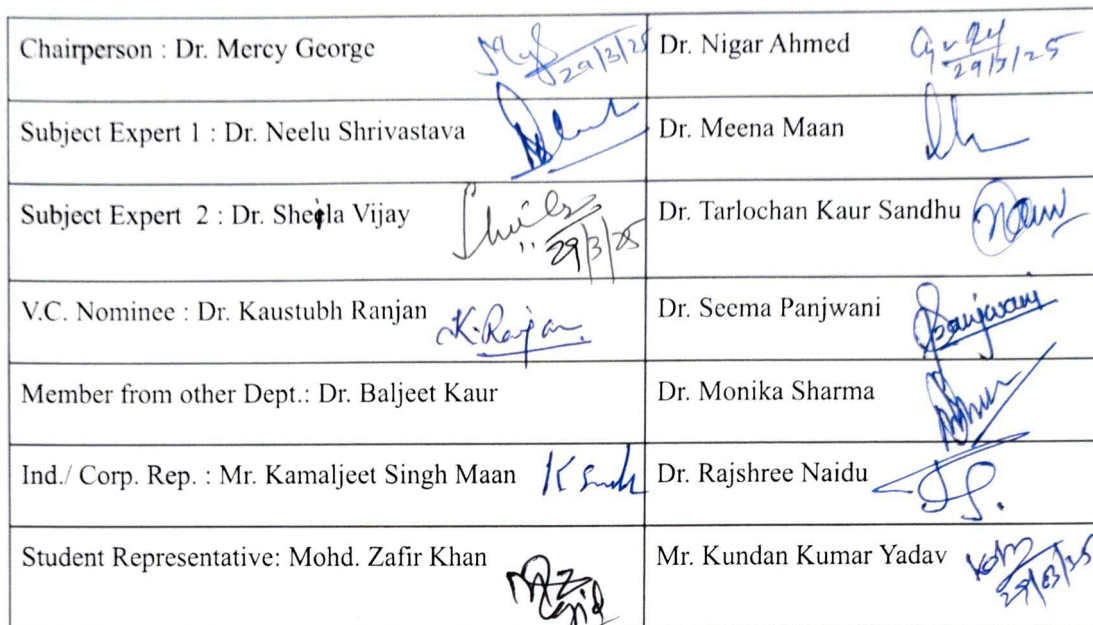 Chairperson : Dr. Mercy George
29/3/25
Dr. Nigar Ahmed
29/3/25
Subject Expert 1 : Dr. Neelu Shrivastava
Dr. Meena Maan
Subject Expert 2 : Dr. Sheela Vijay
29/3/25
Dr. Tarlochan Kaur Sandhu
V.C. Nominee : Dr. Kaustubh Ranjan
K. Ranjan
Dr. Seema Panjwani
Panjwani
Member from other Dept.: Dr. Baljeet Kaur
Dr. Monika Sharma
Ind./ Corp. Rep. : Mr. Kamaljeet Singh Maan
Dr. Rajshree Naidu
Student Representative: Mohd. Zafir Khan
Mr. Kundan Kumar Yadav